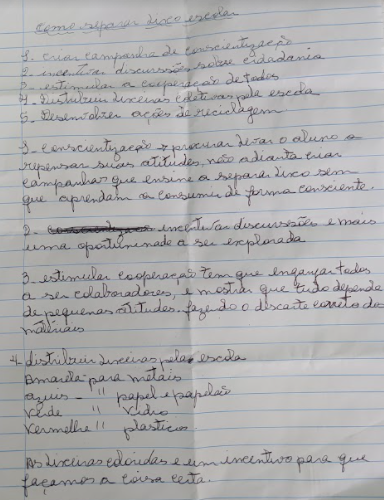 como separar lixo escolar
1- criar campanha de conscientização
2- incentivar discussões sobre cidadania
3- estimular a cooperação de todos
4- Distribuir lixeiras coletivas pela escola
5- Desenvolver ações de reciclagem
1- Conscientização é procurar levar o aluno a
repensar suas atitudes, não adianta criar
campanhas que ensine a separar lixo sem
que aprendam a consumir de forma consciente.
2- incentivar discussões e mais
uma oportuninade a ser explorada
3- estimular cooperação tem que engajar todos
a ser colaboradores, e mostrar que tudo depende
de pequenas atitudes. fazendo o discarte correto dos
matérias
4- distribuir lixeiras pela escola
Amarela para metais
azuis - " papel e papelão
Verde " Vidro
Vermelhe " plasticos.
As lixeiras coloridas e um incentivo para que
façamos a coisa certa.